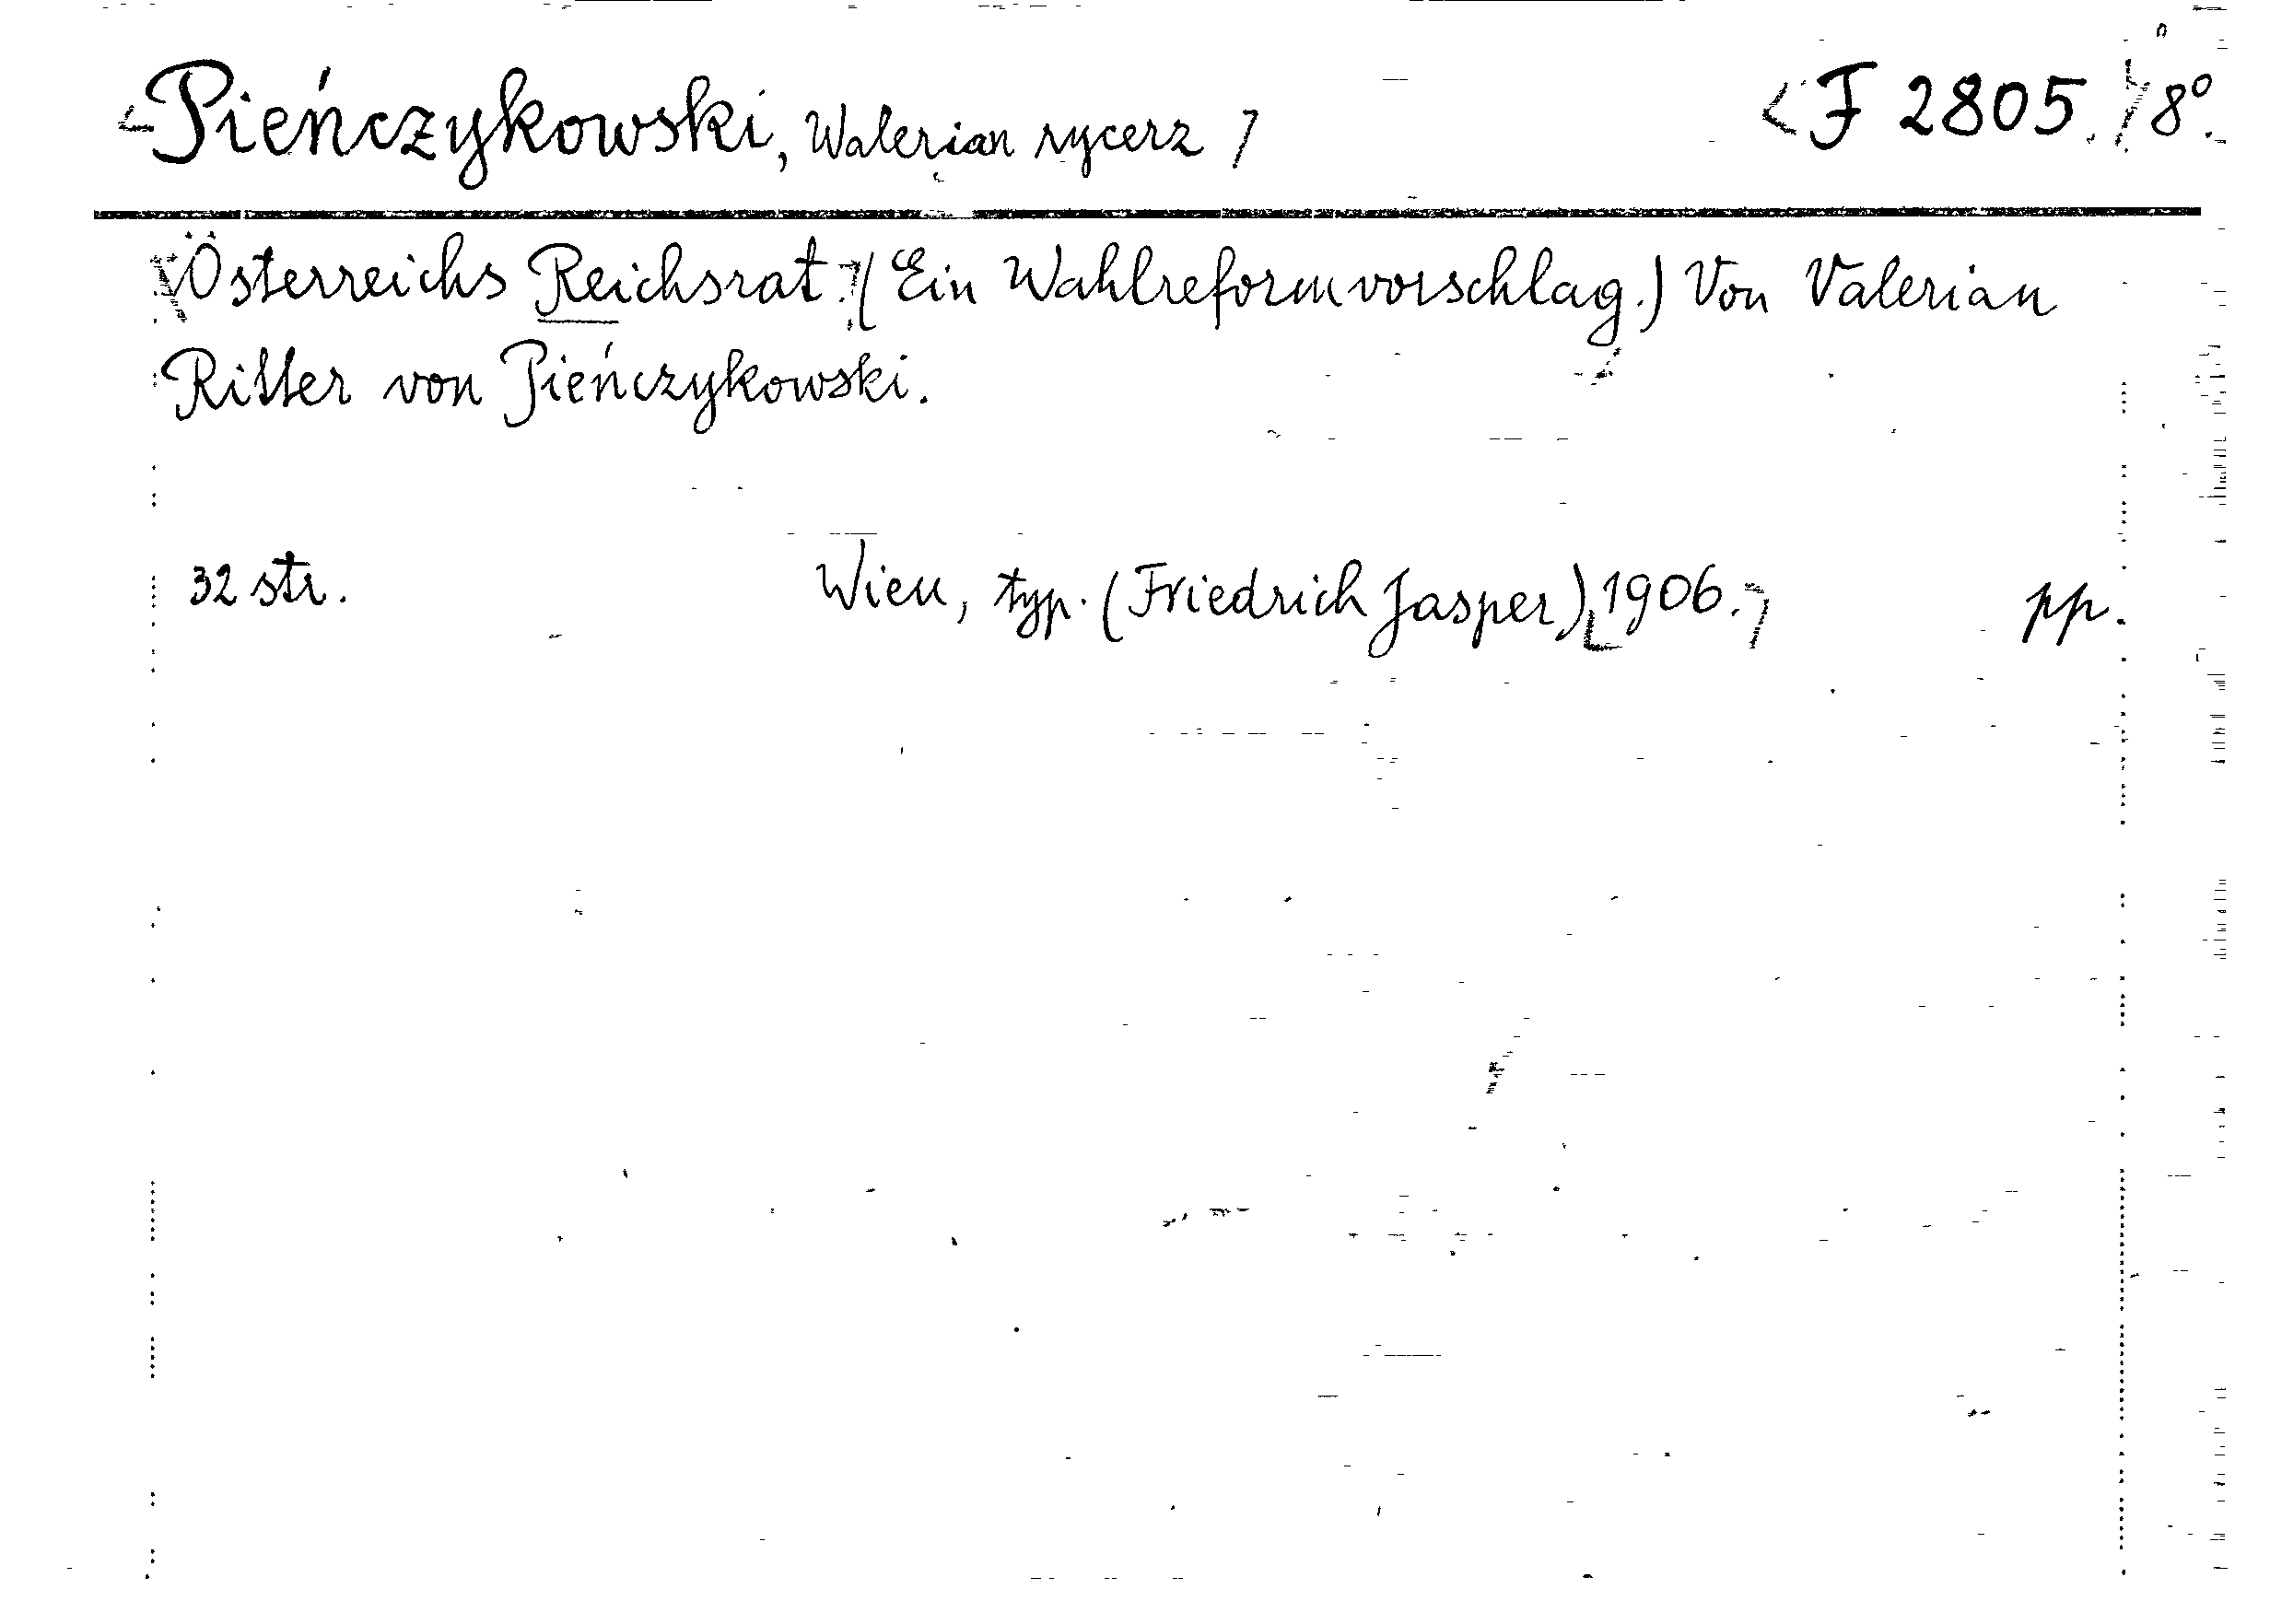 Pieńczykowski, Walerian rycerz F 2805. 8°.
Österreichs Reichsrat. (Ein Wahlreformvorschlag.) Von Valerian
Ritter von Pieńczykowski.
32 str. Wien, typ. (Friedrich Jasper), 1906. pp.